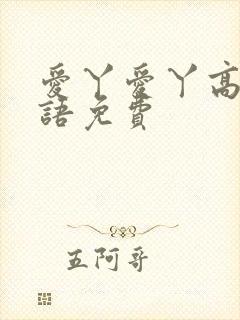 愛丫愛丫高
語免費
五阿哥